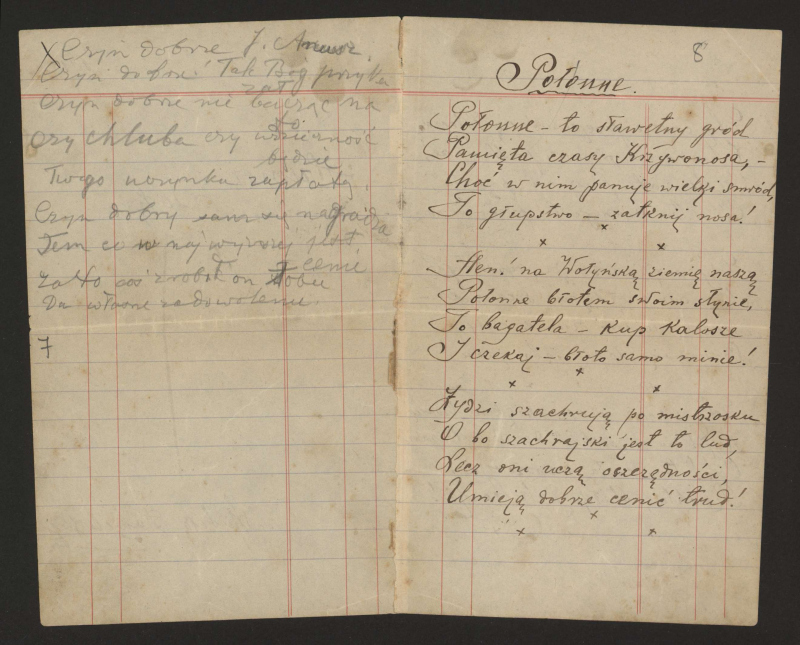 Czyń dobrze J.
Czyń dobrze! Tak Bóg
Czyń dobrze nie bacząc na
zato
czy chluba czy wdzięczność
to
będzie
Twego uczynku zapłatą.
Czyń dobry sam się nagradza
Tem co w naj wyższej jest
cenie
Zato coś zrobił on Tobie
Da własne zadowolenie.
7
8
Połonne.
Połonne – to sławetny gród
Pamięta czasy Krzywonosa, –
Choć w nim panuje wielki smród,
To głupstwo – zatknij nosa!
x x x
Hen! na Wołyńską ziemię naszą
Połonne błotem swoim słynie,
To bagatela – kup kalosze
I czekaj – błoto samo minie!
x x x
Żydzi szachrują po mistrzosku
O bo szachrajski jest to lud,
Lecz oni uczą oszczędności,
Umieją dobrze cenić trud!
x x x